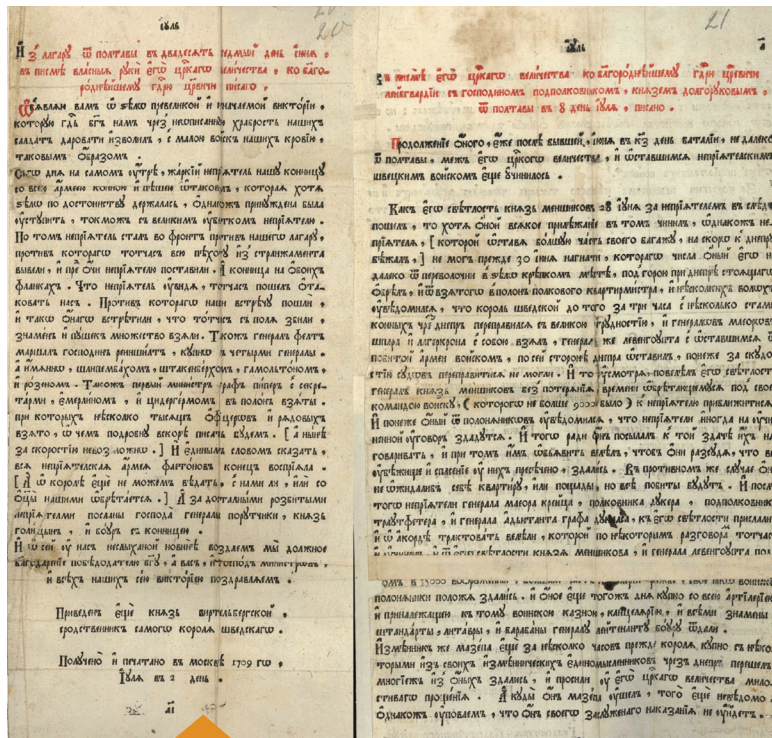 іꙋль
20
И з̾ лагарꙋ ѿ полтавы въ двадесять седмый день їюнѧ ,
въ писмѣ власныѧ рꙋки егѡ црⷭ҇кагѡ величества , ко благо
роднѣйшемꙋ гдⷭ҇рю црⷭ҇вичю писаго .
Ѡб̾ѧвлѧю вамъ ѡ ѕѣлѡ превеликой и начаемой викторїи ,
которꙋю гдⷭ҇ь бг҃ъ намъ чрез̾ неѡписаннꙋю храбрость нашихъ
салдатъ даровати изволилъ , с малою воискъ нашихъ кровїю ,
таковымъ ѡбразомъ .
Сегѡ днѧ на самомъ оутрѣ , жаркїй непрїѧтель нашꙋ конницꙋ
со всею армеею конною и пѣшею ѿтаковалъ , которая хотѧ
ѕѣлѡ по достоинствꙋ держалась , ѻднакожъ принꙋждена была
оустꙋпить , токможъ съ великимъ оубыткомъ непрїѧтелю .
По томъ непрїѧтель сталъ во фрѡнтъ противъ нашегѡ лагарꙋ ,
противъ котораго тотчасъ всю пѣхотꙋ из̾ транжамента
вывели , и пред̾ ѻчи непрїѧтелю поставили . А конница на ѻбоихъ
флан̾кахъ . Что непрїѧтель оувидѧ , тотчасъ пошелъ ѿта
ковать насъ . Противъ котораго наши встрѣчꙋ пошли ,
и такѡ ѻнаго встрѣтили , что тотчасъ съ полѧ збили .
знаменъ и пꙋшекъ множество взѧли . Такожъ генералъ фелтъ
маршалъ господинъ реиншилтъ , кꙋпнѡ с четырми генералы .
а имѧннѡ , шлипембахомъ , штакенберхомъ , гамольтономъ ,
и розеномъ . Такожъ первый министръ графъ пиперъ с секре
тарми , емерлиномъ , и цидергермомъ въ полонъ взѧты .
при которыхъ нѣсколко тысѧщъ ѻфицеровъ и рѧдовыхъ
взѧто , ѡ чемъ подробнꙋ вскорѣ писать бꙋдемъ . [ а нынѣ
за скоростїю невозможнѡ . ] И единымъ словомъ сказать ,
всѧ непрїѧтелская армеѧ фаетоновъ конецъ воспрїѧла .
[ А ѡ королѣ еще не можемъ вѣдать , с нами ли , или со
ѻтцы нашими ѡбрѣтаетсѧ . ] А за досталными розбитыми
непрїѧтелми посланы господа генералы порꙋтчики , кнѧзь
голицынъ , и боꙋръ съ конницею .
И ѡ сей оу насъ неслыханой новинѣ воздаемъ мы должное
благодаренїе побѣдодателю бг҃ꙋ , а васъ , и господъ министровъ ,
и всѣхъ нашихъ сею викторїею поздравлѧемъ .
Приведенъ еще кнѧзь виртельбергской .
сродственникъ самого королѧ шведскагѡ .
Полꙋчено и печатано въ москвѣ 1709 гѡ ,
Їꙋлѧ въ 2 день .
аі
21
іꙋль
а
въ писмѣ егѡ црⷭ҇кагѡ величества ко благороднѣйшемꙋ гдⷭ҇рю црⷭ҇вичю
лейбгвардїи съ господиномъ подполковникомъ , кнѧземъ долгорꙋковымъ ,
ѿ полтавы въ 8 день їꙋлѧ , писано .
Продолженїе ѻного , еже послѣ бывшей , їюнѧ въ кз день баталїи , не далеко
ѿ полтавы , межъ егѡ црⷭ҇кого величества , и ѡставшимсѧ непрїѧтелским
швецкимъ воискомъ еще оучинилось .
Какъ егѡ свѣтлость кнѧзь меншиковъ 28 їꙋнѧ за непрїѧтелемъ въ слѣд
пошелъ , то хотѧ ѻной всѧкое прилѣжанїе въ томъ чинилъ , ѡднакожъ не
прїѧтелѧ , [ которой ѡставѧ болшꙋю часть своего багажꙋ , на скорѡ к днепрꙋ
бѣжалъ , ] не могъ прежде 30 їюнѧ нагнати , котораго числа ѻный его не
далеко ѿ переволочни въ ѕѣлѡ крѣпкомъ мѣстѣ , под̾ горою при днепрѣ стоѧщаго
ѻбрѣлъ , и ѿ взѧтого въ полонъ полкового квартирмистра , и нѣсколких̾ волохъ
оувѣдомилсѧ , что король шведской до того за три часа с нѣсколко стами
конныхъ чрез̾ днепръ переправилсѧ съ великою трꙋдностїю , и генераловъ маеоровъ
шпара и лагеркрона с собою взѧлъ , генералъ же левенгоупта с ѡставшимсѧ ѿ
побитой армеи воискомъ , по сей сторонѣ днепра ѡставилъ , понеже за скꙋдо
стїю сꙋдовъ переправитисѧ не могли . И то оусмотрѧ , повелѣлъ егѡ свѣтлость
генералъ кнѧзь меншиковъ без̾ потерѧнїѧ времени ѡбрѣтающемꙋсѧ под̾ свое
командою воискꙋ , ( которого не болше 9000 было ) к непрїѧтелю приближитисѧ
И понеже ѻный ѿ полонѧниковъ оувѣдомилсѧ , что непрїѧтели иногда на оучи
ненной оуговоръ здадꙋтсѧ . И того ради ѻнъ посылалъ к той здаче ихъ на
говаривать , и при томъ имъ ѡб̾ѧвить велѣлъ , чтоб̾ ѻни разсꙋдѧ , что все
оубѣжище и спасенїе оу нихъ пресѣчено , здались . Въ противномъ же слꙋчае ѻн
не ѡжидалибъ себѣ квартирꙋ , или пощады , но всѣ побиты бꙋдꙋтъ . И послѣ
того непрїѧтели генерала маеора крейца , полковника дꙋкера , подполковник
траꙋтфетера , и генерала адъютанта графа дꙋкласа , къ егѡ свѣтлости прислали
и ѡ акордѣ трактовать велѣли , которой по нѣкоторымъ разговорѣ тотчас
свѣтлости кнѧзѧ меншикова , и генерала левенгоупта пол
полонѧники положа здались . и ѻное еще тогожъ днѧ кꙋпно со всею артилерїею
и принадлежащею к томꙋ воинскою казною , канцелѧрїею , и всѣми знамены
штандарты , литавры , и барабаны генералꙋ лейтенантꙋ боꙋрꙋ ѿдали .
Измѣнникъ же мазепа еще за нѣсколко часовъ прежде королѧ , кꙋпно съ нѣко
торыми из̾ своихъ измѣнническихъ единомысленниковъ чрезъ днепръ перешелъ
многїежъ из̾ ѻныхъ здались , и просили оу егѡ црⷭ҇кагѡ величества мило
стиваго прощенїѧ . А кꙋды ѻнъ мазепа оушелъ , того еще невѣдомо .
Ѻднакожъ оуповаемъ , что ѻнъ своегѡ заслꙋженаго наказанїѧ не оуйдетъ .